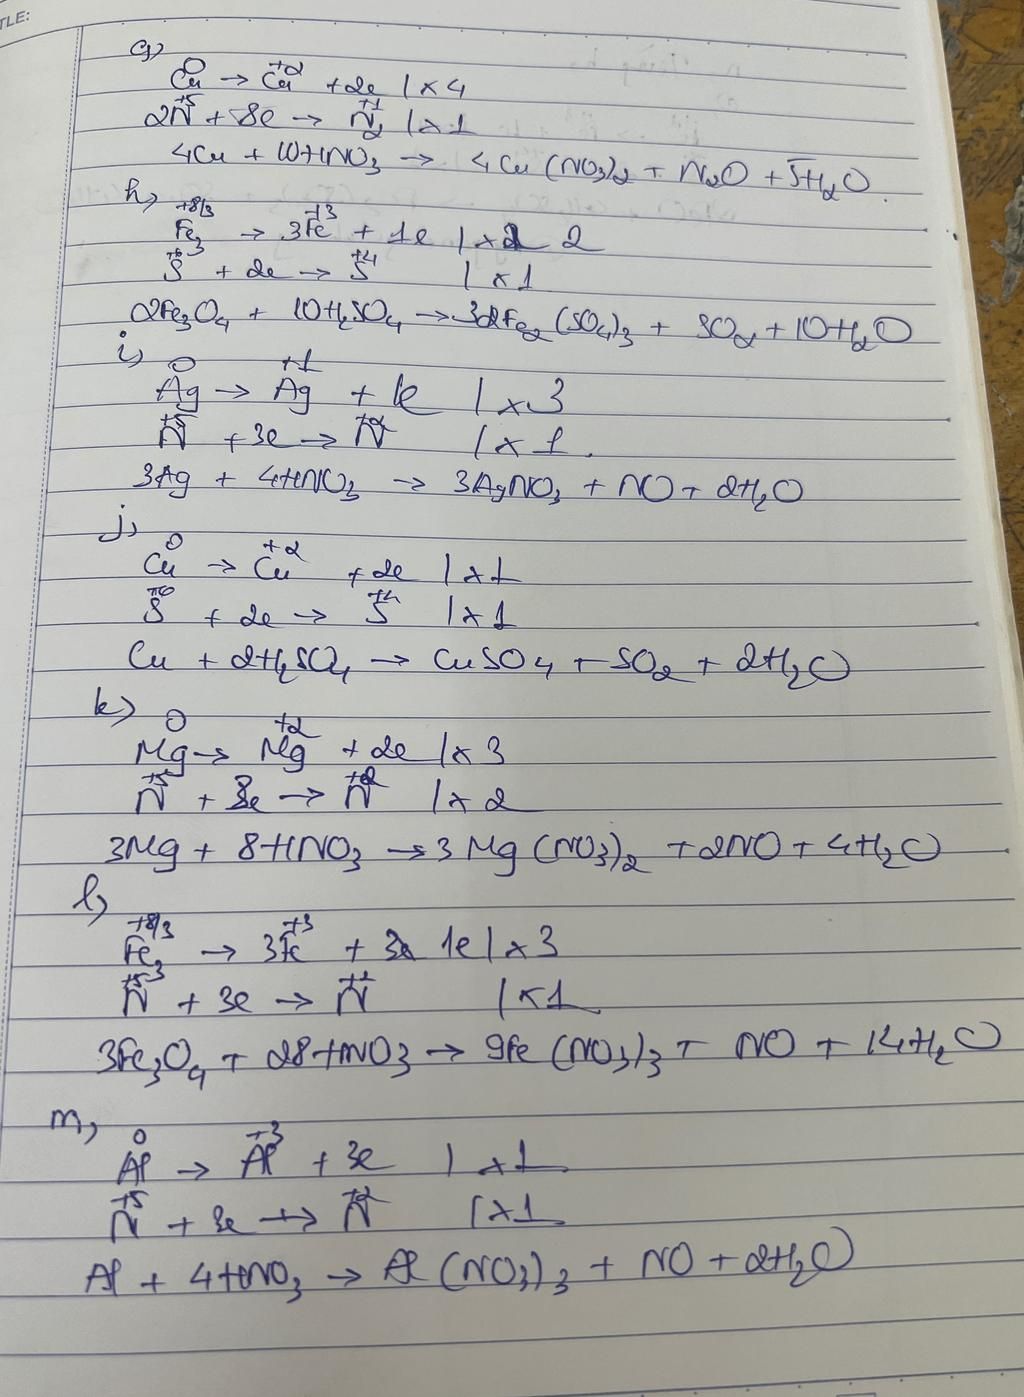 TLE:
g,
0 +2
Cu → Cu + 2e | x 4
+5 +1
2N + 8e → N₂ | x 1
4Cu + 10HNO₃ → 4Cu(NO₃)₂ + N₂O + 5H₂O
h,
+8/3 +3
Fe₃ → 3Fe + 1e | x 2
+6 +4
S + 2e → S | x 1
2Fe₃O₄ + 10H₂SO₄ → 3Fe₂(SO₄)₃ + SO₂ + 10H₂O
i,
0 +1
Ag → Ag + 1e | x 3
+5 +2
N + 3e → N | x 1.
3Ag + 4HNO₃ → 3AgNO₃ + NO + 2H₂O
j,
0 +2
Cu → Cu + 2e | x 1
+6 +4
S + 2e → S | x 1
Cu + 2H₂SO₄ → CuSO₄ + SO₂ + 2H₂O
k)
0 +2
Mg → Mg + 2e | x 3
+5 +2
N + 3e → N | x 2
3Mg + 8HNO₃ → 3Mg(NO₃)₂ + 2NO + 4H₂O
l,
+8/3 +3
Fe₃ → 3Fe + 1e | x 3
+5 +2
N + 3e → N | x 1
3Fe₃O₄ + 28HNO₃ → 9Fe(NO₃)₃ + NO + 14H₂O
m,
0 +3
Al → Al + 3e | x 1
+5 +2
N + 3e → N | x 1
Al + 4HNO₃ → Al(NO₃)₃ + NO + 2H₂O